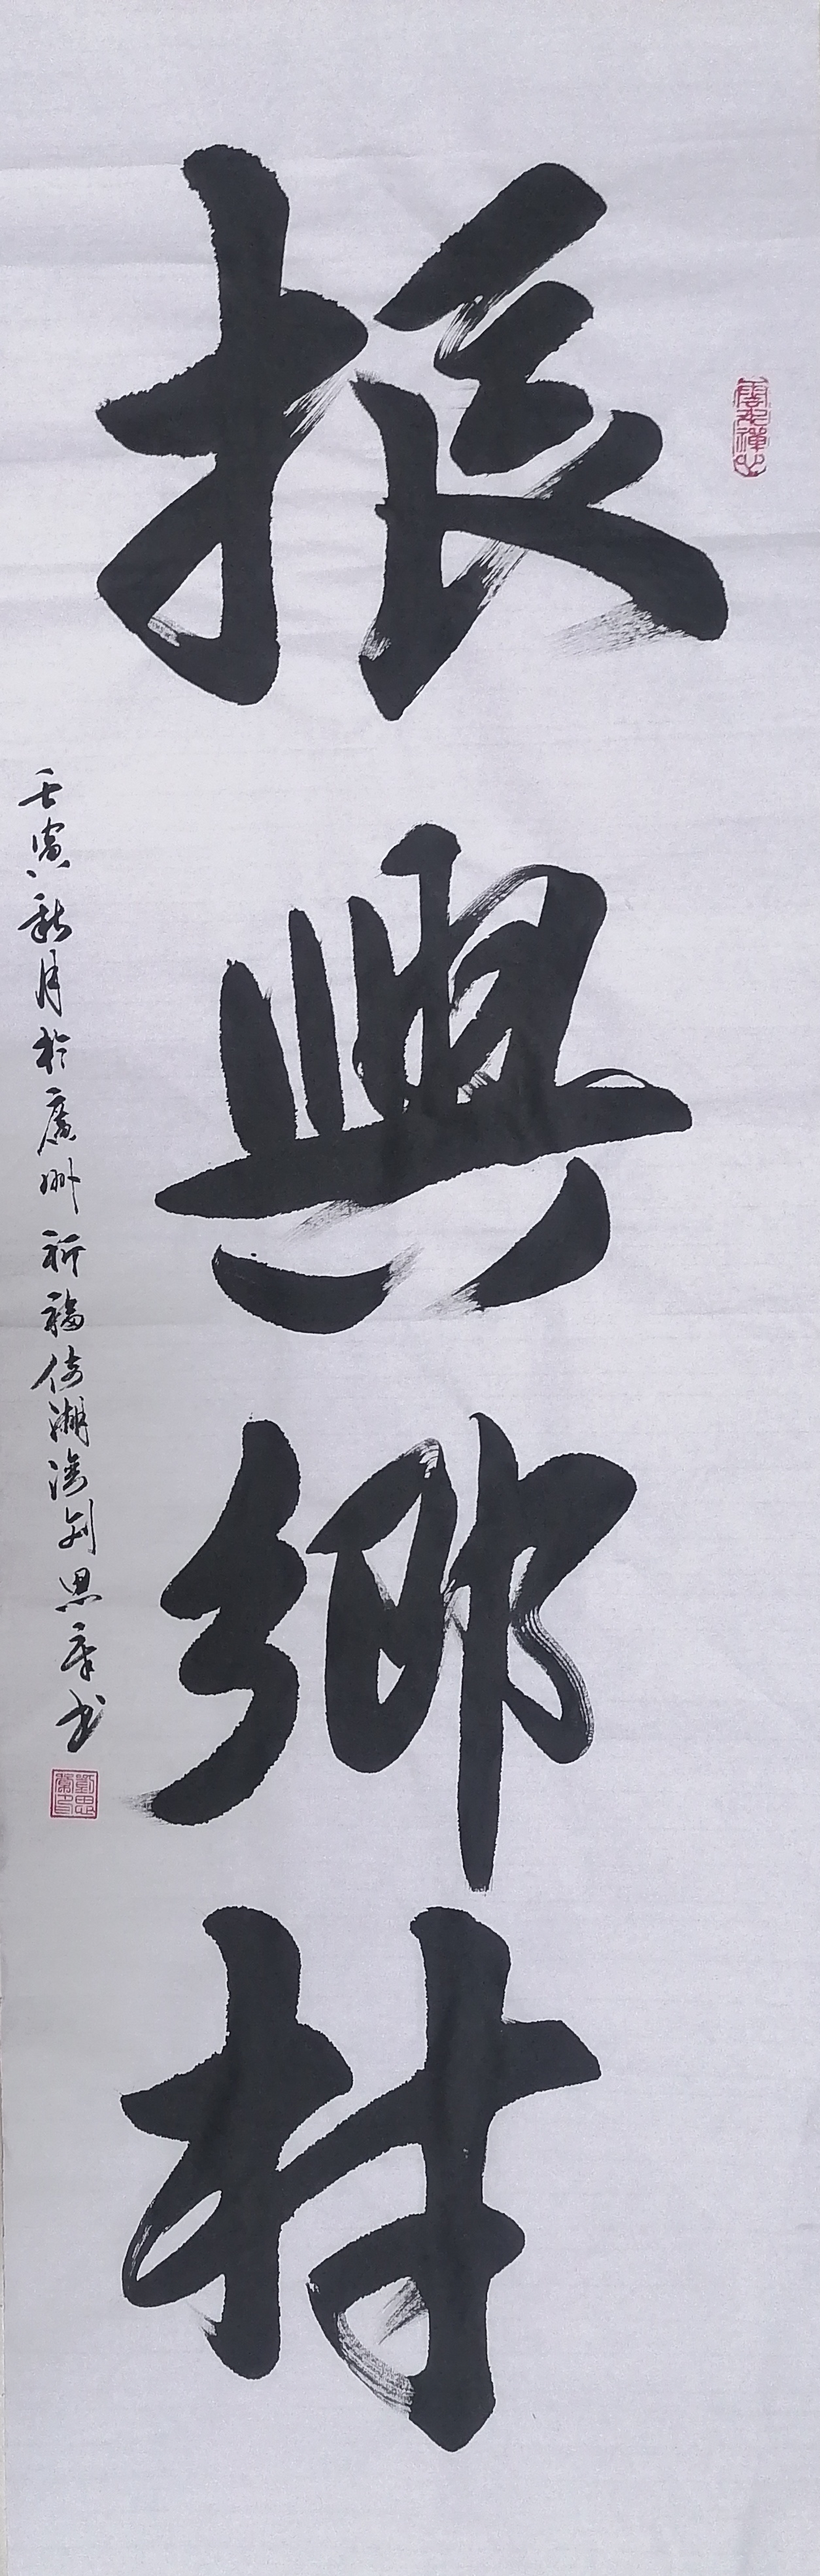 振興鄉村
壬寅秋月於廣州祈福倚湖湾劉思房书